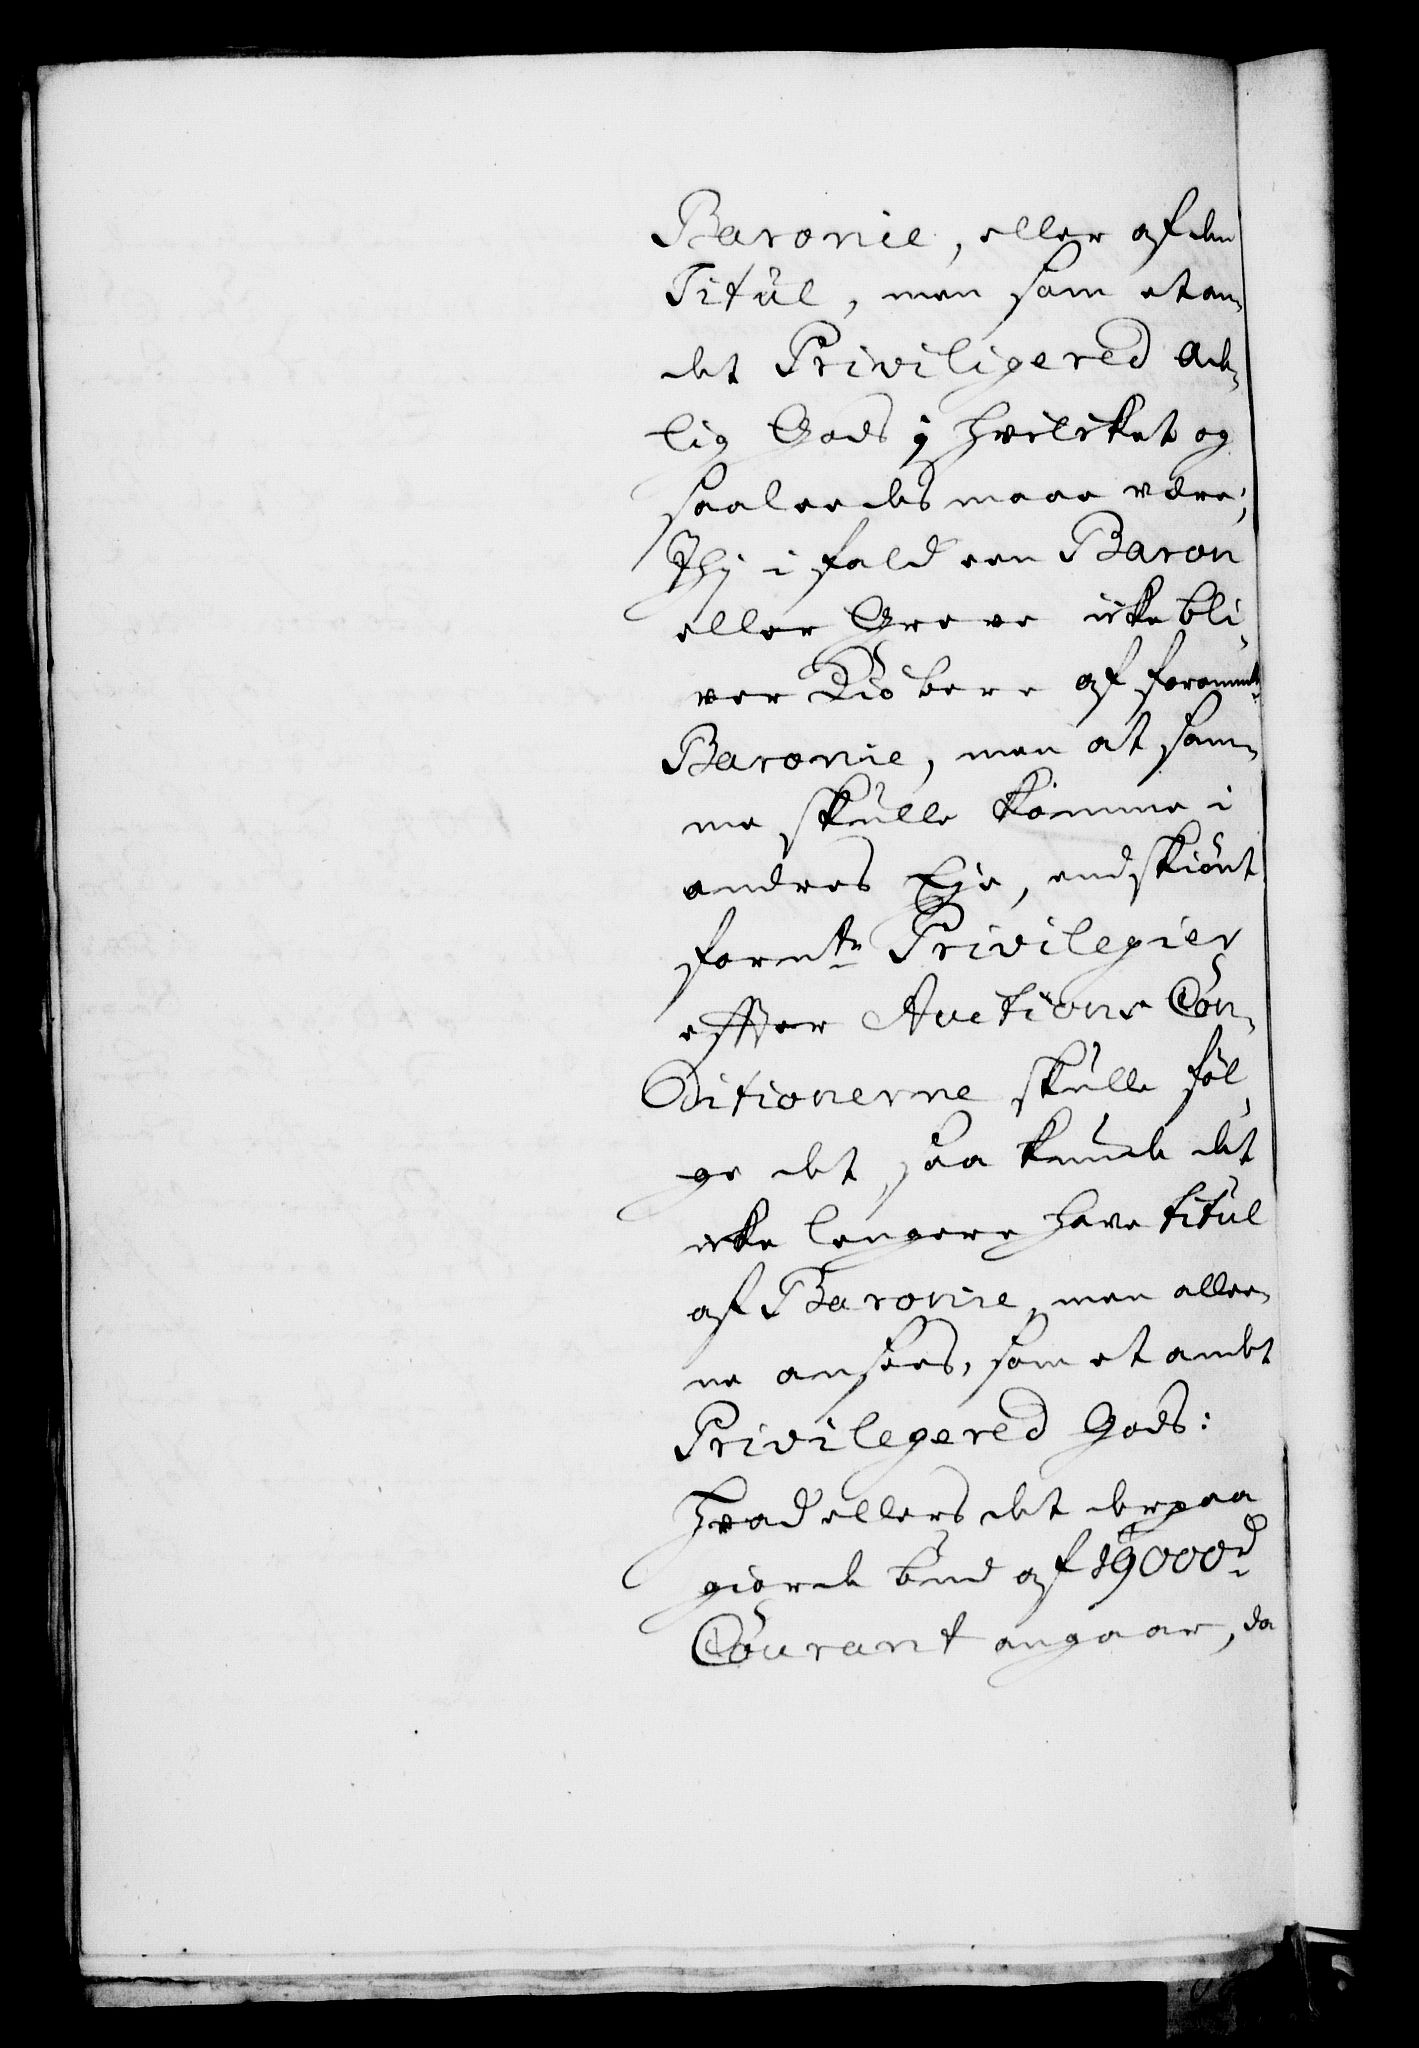 Baronie, eller af den
Titul, men som et an-
det Priviligered Ade-
lig Gods; hvilcket og
saaleedes maae være;
Thj i fald een Baron
eller Greve icke bli-
ver Kiøbere af forommelte
Baronie, men at sam-
me skulle komme i
andres Eje, endskiönt
formte Privilegier
effter Auctions Con-
ditionerne skulle föl-
ge det, saa kunde det
icke lengere have titul
af Baronie, men allee-
ne ansees, som et andet
Privilegered Gods:
Hvad ellers det derpaa
giorde bud af 19000 d
Courant angaar, da